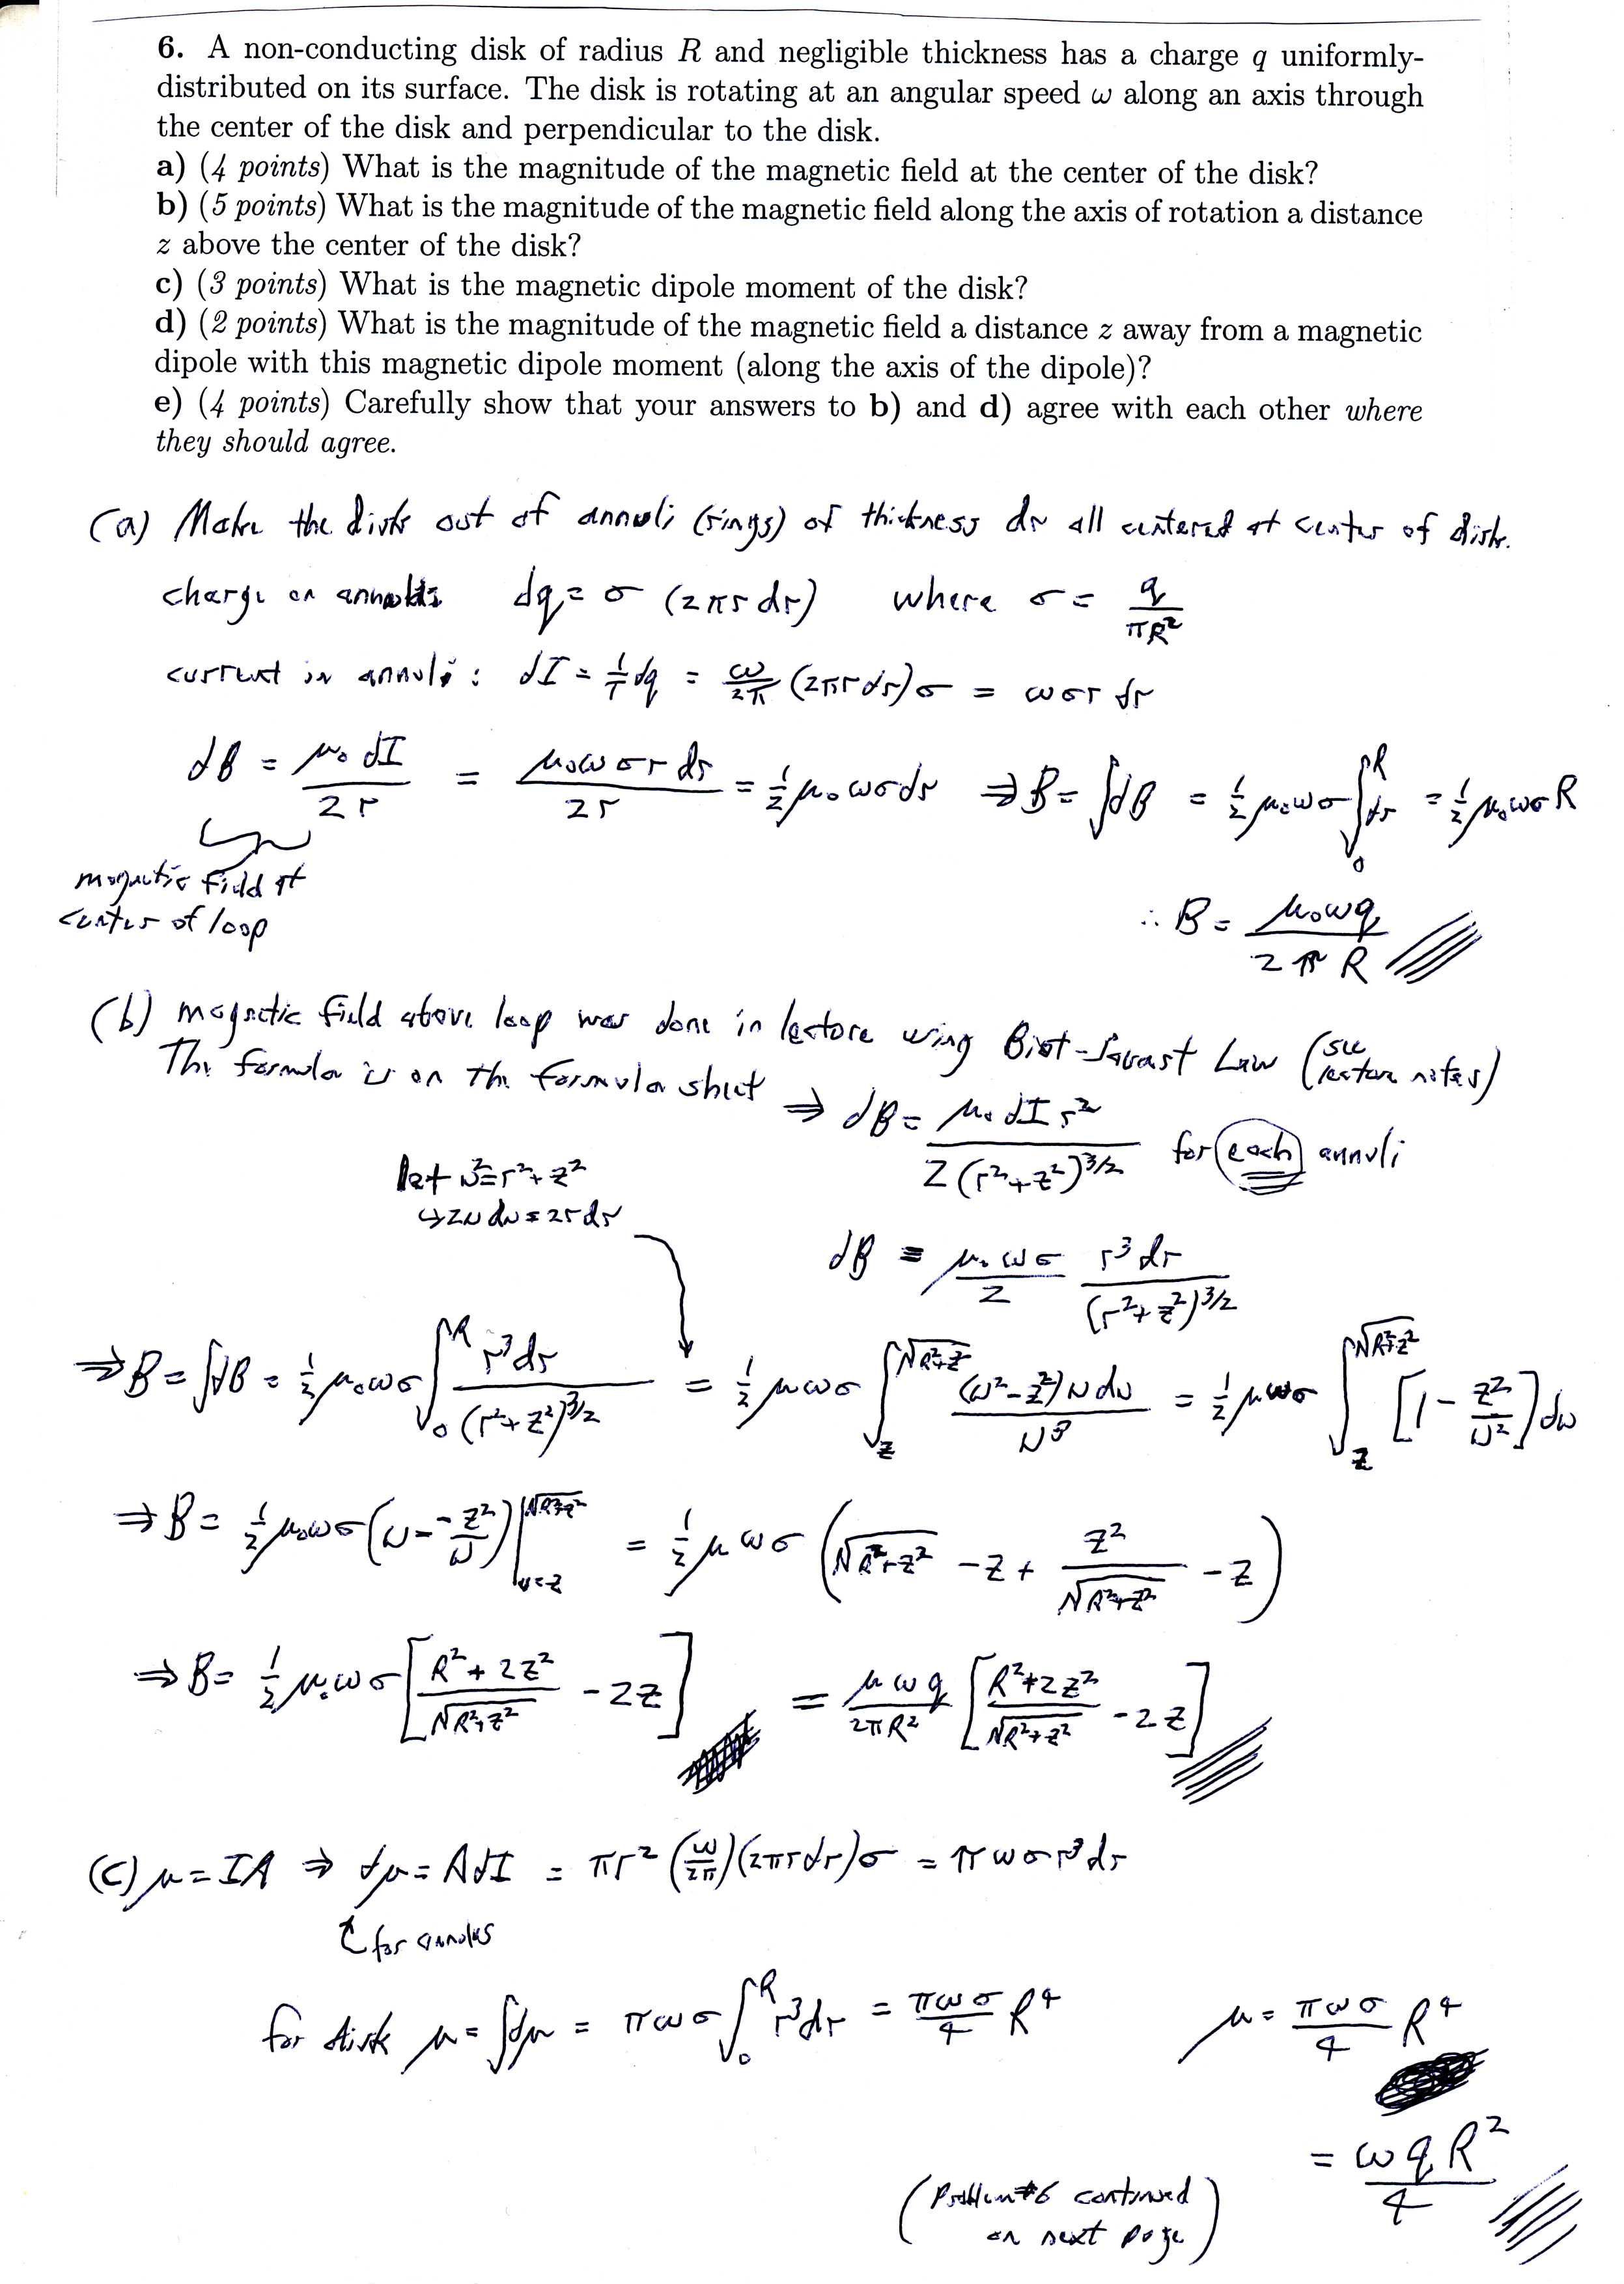 6. A non-conducting disk of radius R and negligible thickness has a charge q uniformly-
distributed on its surface. The disk is rotating at an angular speed ω along an axis through
the center of the disk and perpendicular to the disk.
a) (4 points) What is the magnitude of the magnetic field at the center of the disk?
b) (5 points) What is the magnitude of the magnetic field along the axis of rotation a distance
z above the center of the disk?
c) (3 points) What is the magnetic dipole moment of the disk?
d) (2 points) What is the magnitude of the magnetic field a distance z away from a magnetic
dipole with this magnetic dipole moment (along the axis of the dipole)?
e) (4 points) Carefully show that your answers to b) and d) agree with each other where
they should agree.
(a) Make the disk out of annuli (rings) of thickness dr all centered at center of disk.
charge on annulus dq = σ (2πr dr) where σ = q/πR²
current in annuli: dI = 1/T dq = ω/2π (2πr dr) σ = ωσr dr
dB = μ₀ dI / 2r = μ₀ωσr dr / 2r = ½ μ₀ωσ dr ⇒ B = ∫dB = ½ μ₀ωσ ∫₀ᴿ dr = ½ μ₀ωσR
magnetic field at
center of loop
∴ B = μ₀ωq / 2πR
(b) magnetic field above loop was done in lecture using Biot-Savart Law (see lecture notes)
The formula is on the formula sheet ⇒ dB = μ₀ dI r² / 2(r²+z²)^3/2 for each annuli
let u² = r²+z²
↳ 2u du = 2r dr
dB = μ₀ωσ/2 r³dr/(r²+z²)^3/2
⇒ B = ∫dB = ½ μ₀ωσ ∫₀ᴿ r³dr/(r²+z²)^3/2 = ½ μωσ ∫_z^√(R²+z²) (u²-z²)u du/u³ = ½ μωσ ∫_z^√(R²+z²) [1 - z²/u²] du
⇒ B = ½ μ₀ωσ (u - -z²/u)|_{u=z}^√(R²+z²) = ½ μωσ (√(R²+z²) - z + z²/√(R²+z²) - z)
⇒ B = ½ μ₀ωσ [R²+2z²/√(R²+z²) - 2z] = μωq/2πR² [R²+2z²/√(R²+z²) - 2z]
(c) μ = IA ⇒ dμ = A dI = πr² (ω/2π)(2πr dr)σ = πωσr³dr
for annulus
for disk μ = ∫dμ = πωσ ∫₀ᴿ r³dr = πωσ/4 R⁴ μ = πωσ/4 R⁴
= ωqR²/4
(Problem #6 continued
on next page)